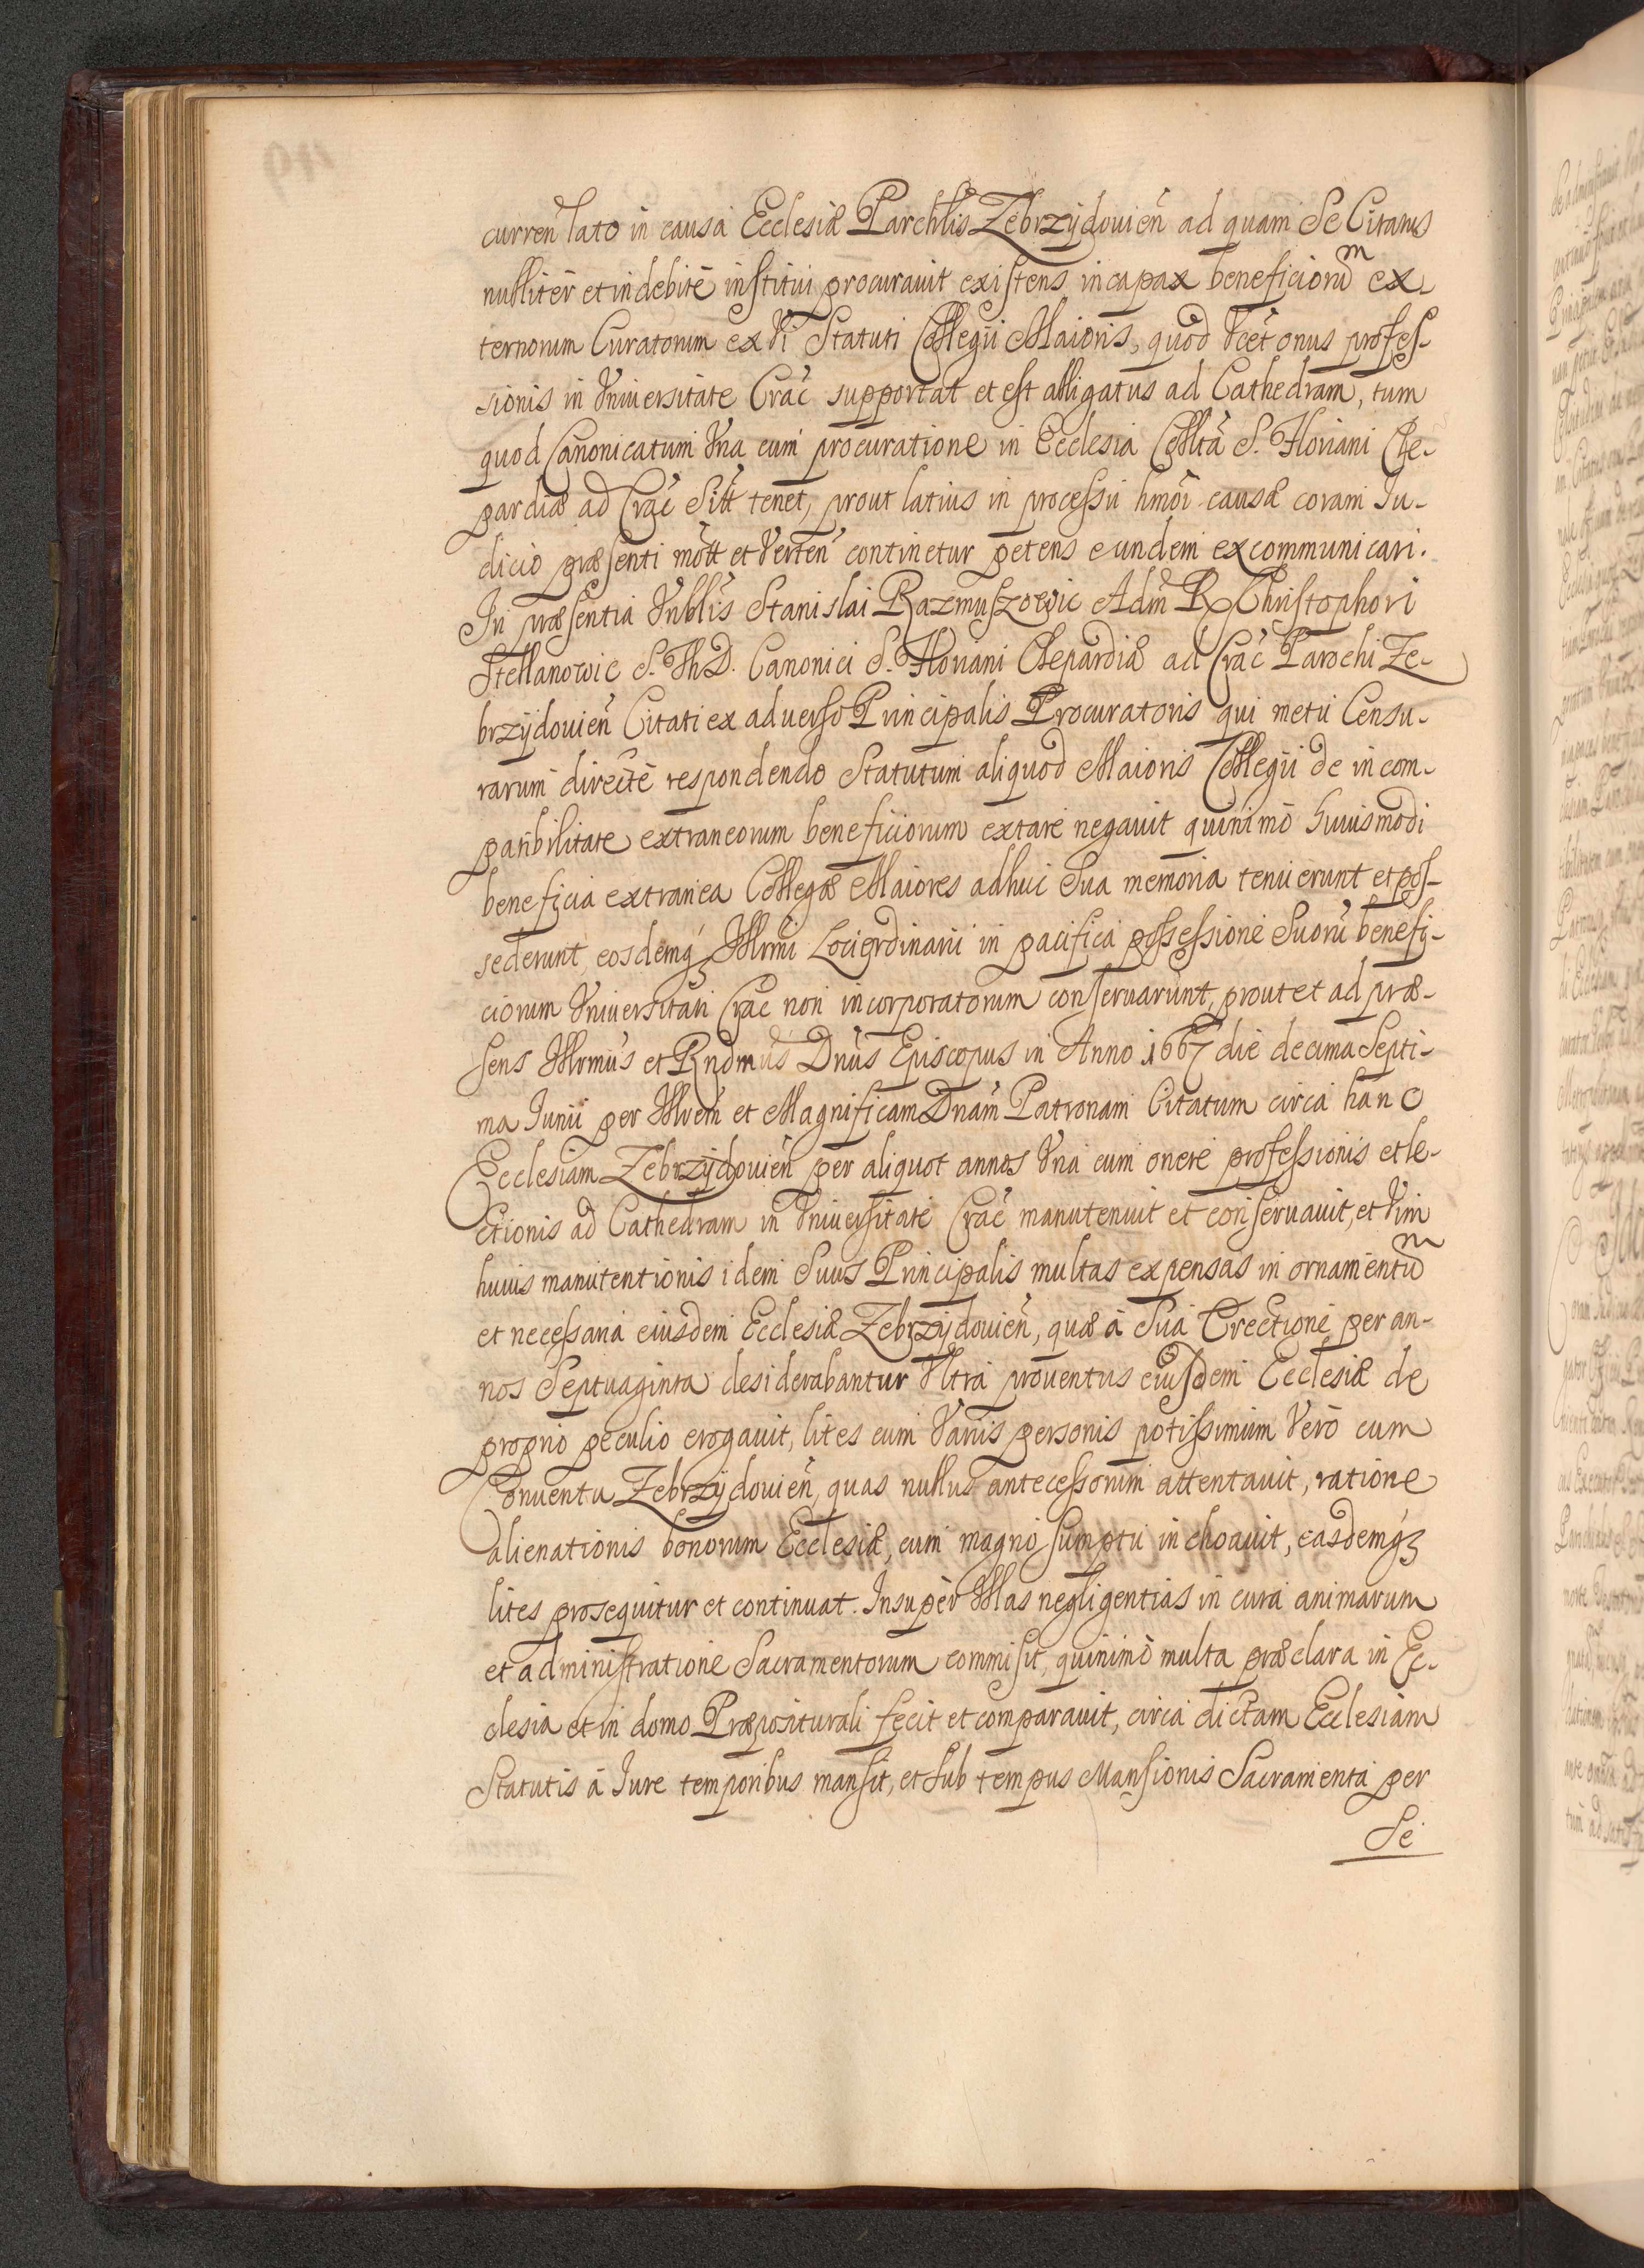 curren̄ lato in causa Ecclesiæ Parchlis Zebrzÿdouien̄ ad quam Se Citatus
nulliter et indebite institui procurauit existens incapax beneficiorum ex-
ternorum Curatorum ex Vi Statuti Collegii Maioris, quod Vcet onus profes-
sionis in Vniuersitate Crac̄ supportat et est alligatus ad Cathedram, tum
quod Canonicatum Vna cum procuratione in Ecclesia Collta S. Floriani Cle-
pardiæ ad Crac̄ Sitt tenet, prout latius in processu hmōi causæ coram Iu-
dicio præsenti mott et Verten̄ continetur petens eundem excommunicari.
In præsentia Vnblis Stanislai Razmuszowic Adm̄ R Christophori
Stellanowic S. Th D. Canonici S. Floriani Clepardiæ ad Crac̄ Parochi Ze-
brzÿdouien̄ Citati ex aduerso Principalis Procuratoris qui metu Censu-
rarum directe respondendo Statutum aliquod Maioris Collegii de incom-
patibilitate extraneorum beneficiorum extare negauit quinimo huiusmodi
beneficia extranea Collegæ Maiores adhuc Sua memoria tenuerunt et pos-
sederunt, eosdemq́ Illrmi Lociordinarii in pacifica possessione Suorū benefi-
ciorum Vniuersitati Crac non incorporatorum conseruarunt, prout et ad præ-
sens Illrmus et Rndmus Dn̄us Episcopus in Anno 1667 die decima Septi-
ma Iunii per Illrem et Magnificam Dn̄am Patronam Citatum circa hanc
Ecclesiam Zebrzÿdouien̄ per aliquot annos Vna cum onere professionis et le-
ctionis ad Cathedram in Vniuersitate Crac̄ manutenuit et conseruauit, et Vim
huius manutentionis idem Suus Principalis multas expensas in ornamentum
et necessaria eiusdem Ecclesiæ Zebrzÿdouien̄, quæ a Sua Erectione per an-
nos Septuaginta desiderabantur Vltra prouentus eiusdem Ecclesiæ de
proprio peculio erogauit, lites cum Variis personis potissimum Vero cum
Conuentu Zebrzÿdouien̄, quas nullus antecessorum attentauit, ratione
alienationis bonorum Ecclesiæ, cum magno sumptu inchoauit, easdemq́3
lites prosequitur et continuat. Insuper Vllas negligentias in cura animarum
et administratione Sacramentorum commisit, quinimo multa præclara in Ec-
clesia et in domo Præpositurali fecit et comparauit, circa dictam Ecclesiam
Statutis a Iure temporibus mansit, et sub tempus Mansionis Sacramenta per
Se